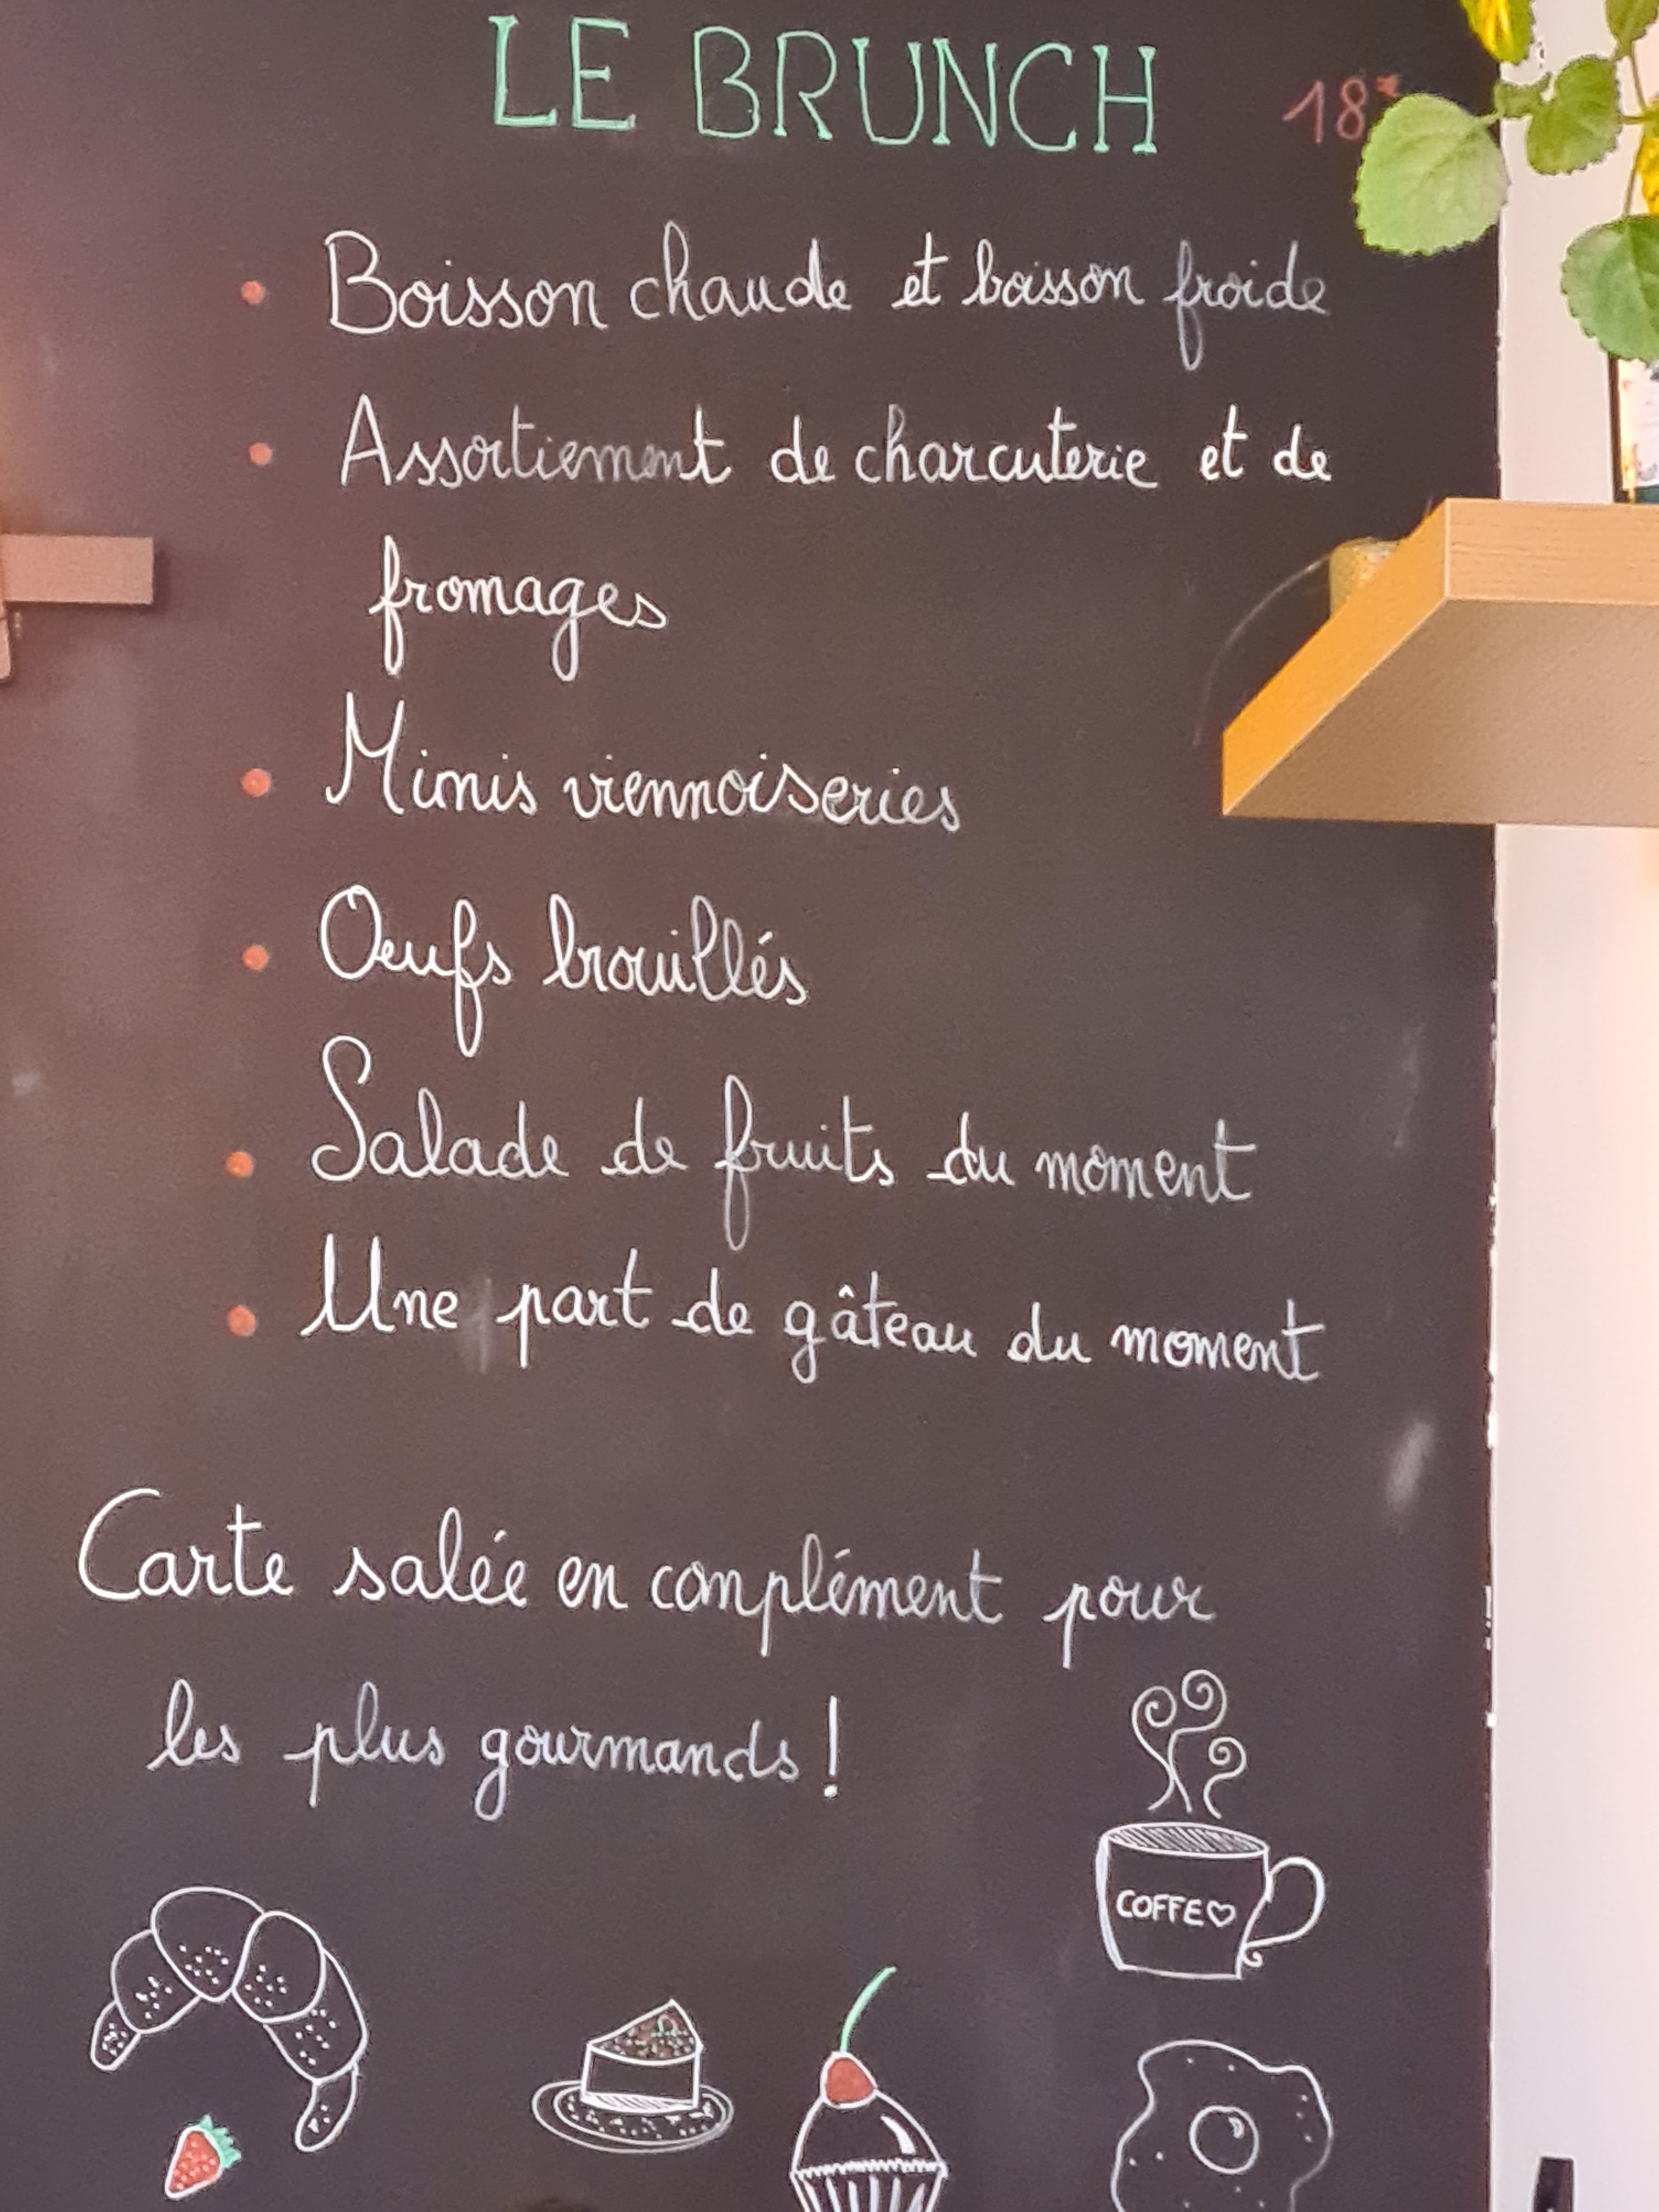 LE BRUNCH 18€
• Boisson chaude et boisson froide
• Assortiement de charcuterie et de
fromages
• Minis viennoiseries
• Oeufs brouillés
• Salade de fruits du moment
• Une part de gâteau du moment
Carte salée en complément pour
les plus gourmands !
COFFE♡